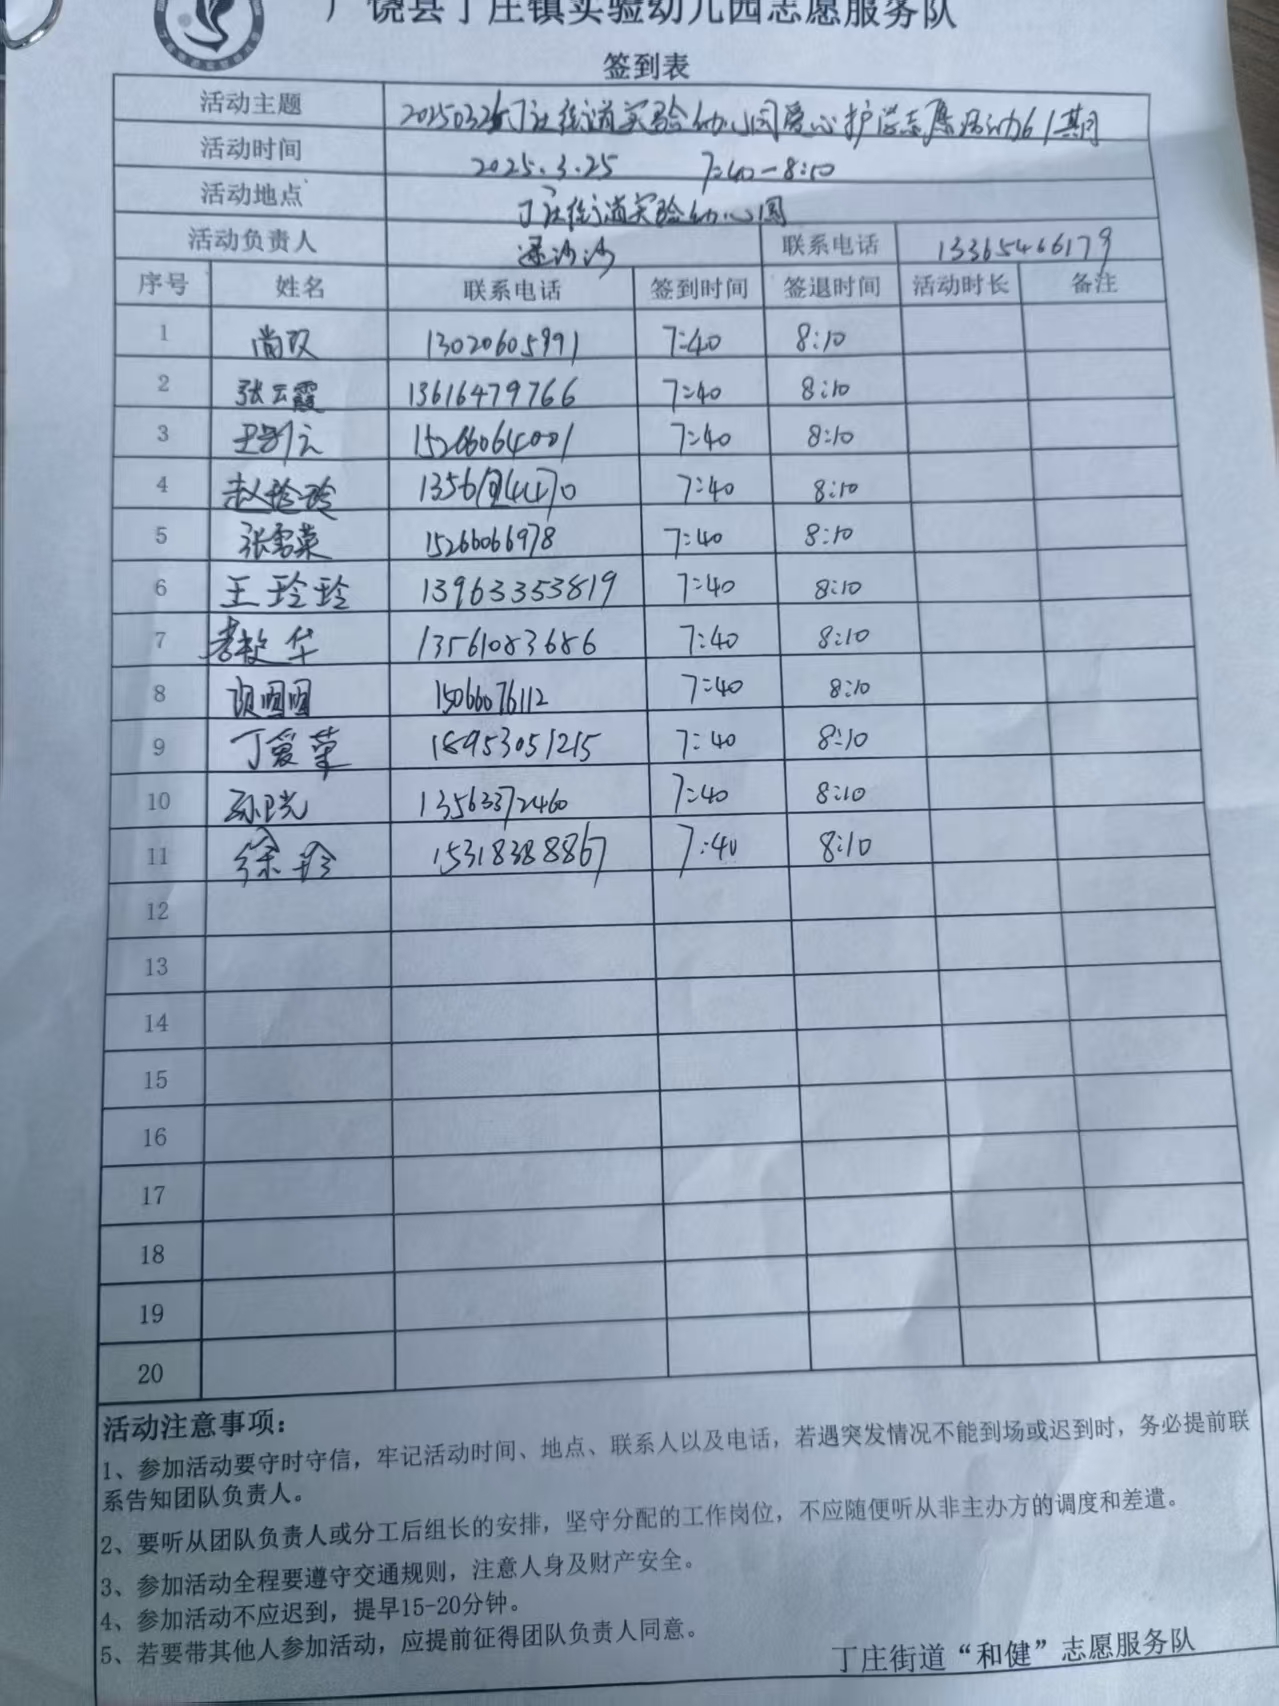 广饶县丁庄镇实验幼儿园志愿服务队
签到表
活动主题 丁庄街道实验幼儿园爱心护学志愿活动61期
活动时间 2025.3.25 7:40-8:10
活动地点 丁庄街道实验幼儿园
活动负责人 梁沙沙 联系电话 13365466179
序号 姓名 联系电话 签到时间 签退时间 活动时长 备注
1 尚双 13020605991 7:40 8:10
2 张云霞 13616479766 7:40 8:10
3 15266064001 7:40 8:10
4 赵玲玲 7:40 8:10
5 张雪菜 15266066978 7:40 8:10
6 王玲玲 13963353819 7:40 8:10
7 华 13561083686 7:40 8:10
8 15066076112 7:40 8:10
9 丁爱菊 18953051215 7:40 8:10
10 孙晓 13563372460 7:40 8:10
11 徐玲 15318388867 7:40 8:10
12
13
14
15
16
17
18
19
20
活动注意事项：
1、参加活动要守时守信，牢记活动时间、地点、联系人以及电话，若遇突发情况不能到场或迟到时，务必提前联
系告知团队负责人。
2、要听从团队负责人或分工后组长的安排，坚守分配的工作岗位，不应随便听从非主办方的调度和差遣。
3、参加活动全程要遵守交通规则，注意人身及财产安全。
4、参加活动不应迟到，提早15-20分钟。
5、若要带其他人参加活动，应提前征得团队负责人同意。
丁庄街道“和健”志愿服务队